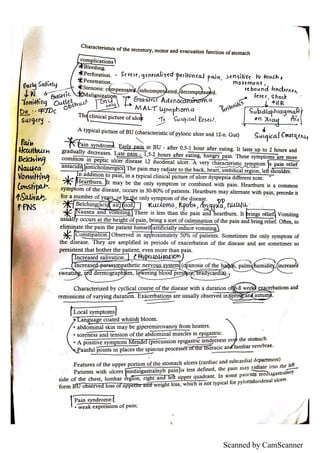 Characteristics of the secretory, motor and evacuation function of stomach
complications
Bleeding.
Perforation. - Severe, generalised peritoneal pain, sensitive to touch,
Penetration.
movement,
Stenosis: compensated, subcompensated, decompensated.
rebound tenderness,
Malignization.
fever, shock
↑HR
Only GU
Gastric Adenocarcinoma
MALT Lymphoma
Peritonitis
The clinical picture of ulcer
Tx: Surgical Resec.
Subdiaphragmatic
on Xray
Air
Surgical Emergency
Early Satiety
↓ N
Gastric
Vomiting
Outlet
Obstruct
Dx
Surgery.
A typical picture of BU (characteristic of pyloric ulcer and 12-n. Gut)
Pain
Heartburn
Belching
Nausea
Vomiting
Constipat.
↑Saliva
↑PNS
Pain syndrome. Early pain at BU - after 0.5-1 hour after eating. It lasts up to 2 hours and
gradually decreases. Late pain - 1,5-2 hours after eating, hungry pain. These symptoms are more
common in peptic ulcer disease 12 duodenal ulcer. A very characteristic symptom is pain relief
antacids anticholinergics. The pain may radiate to the back, heart, umbilical region, left shoulder.
In addition to pain, in a typical clinical picture of ulcer dyspepsia different note.
Heartburn. It may be the only symptom or combined with pain. Heartburn is a common
symptom of the disease, occurs in 30-80% of patients. Heartburn may alternate with pain, precede it
for a number of years, or be the only symptom of the disease.
Belching air, food
Nausea and vomiting. There is less than the pain and heartburn. It brings relief. Vomiting
usually occurs at the height of pain, being a sort of culmination of the pain and bring relief. Often, to
eliminate the pain the patient himself artificially induce vomiting.
Constipation. Observed in approximately 50% of patients. Sometimes the only symptom of
the disease. They are amplified in periods of exacerbation of the disease and are sometimes so
persistent that bother the patient, even more than pain.
Increased salivation.
Hypersalivation
Increased parasympathetic nervous system (cyanosis of the hands, palms humidity, increased
sweating, red dermographism, lowering blood pressure, bradycardia).
Characterized by cyclical course of the disease with a duration of 6-8 weeks exacerbations and
remissions of varying duration. Exacerbations are usually observed in spring and autumn.
Local symptoms
Language coated whitish bloom.
• abdominal skin may be giperemirovanny from heaters.
• soreness and tension of the abdominal muscles in epigastric.
• A positive symptom Mendel (percussion epigastric tenderness over the stomach.
Painful points in places the spinous processes of the thoracic and lumbar vertebrae.
Features of the upper portion of the stomach ulcers (cardiac and subcardial department)
Patients with ulcers mediogastralnyh pain is less defined, the pain may radiate into the left
side of the chest, lumbar region, right and left upper quadrant. In some patients mediogastralny
form BU observed loss of appetite and weight loss, which is not typical for pyloroduodenal ulcers.
Pain syndrome
• weak expression of pain;
Scanned by CamScanner